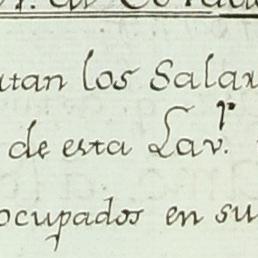 utan los Salar
de esta Lav.r
ocupados en su